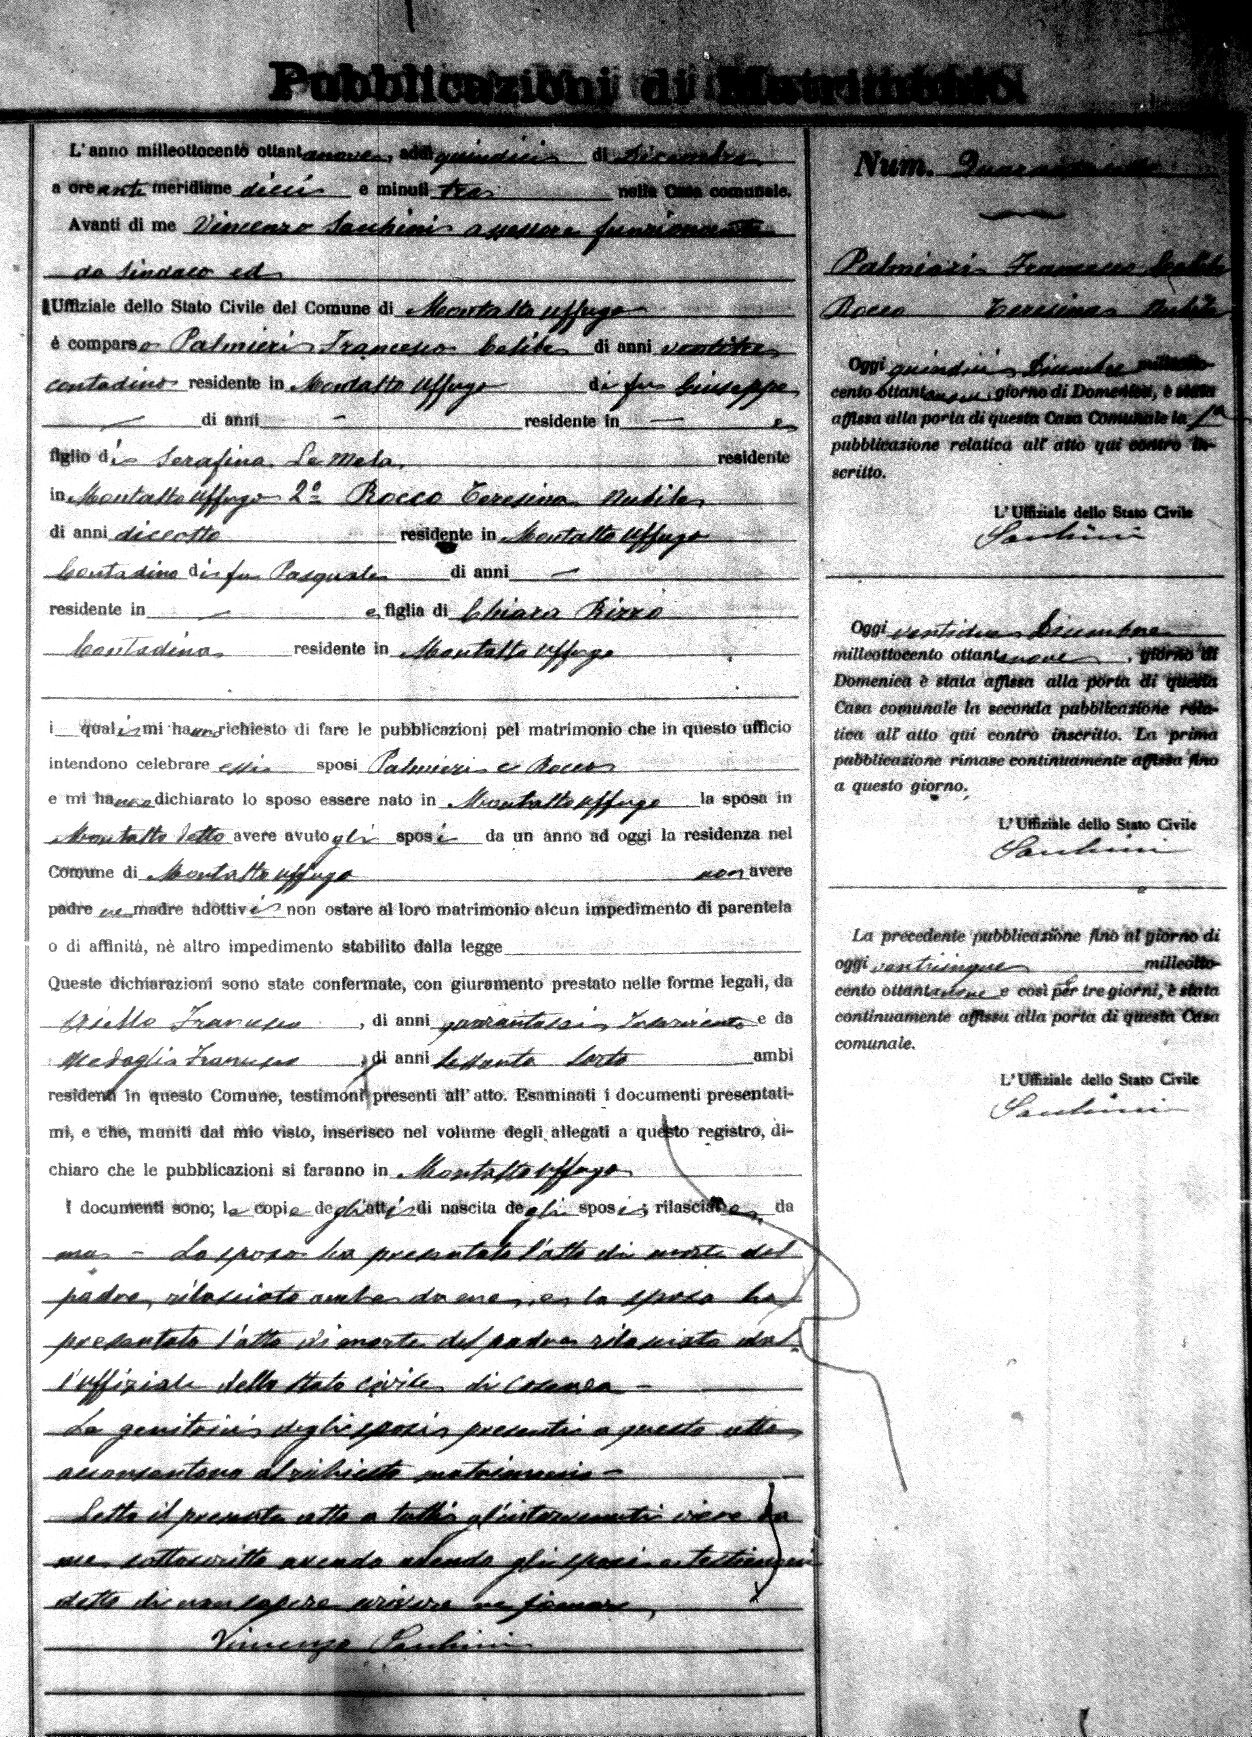 Pubblicazioni di Matrimonio
L'anno milleottocento ottantanove, addì quindici di Dicembre
a ore anti meridiane dieci e minuti tre nella Casa comunale.
Avanti di me Vincenzo assessore funzionante
da Sindaco ed
Uffiziale dello Stato Civile del Comune di Montalto Uffugo
è comparso Palmieri Francesco Celibe di anni ventitre
contadino residente in Montalto Uffugo di fu Giuseppe
di anni residente in e
figlio di Serafina La Mela residente
in Montalto Uffugo 2º Rocco Teresina Nubile
di anni diciotto residente in Montalto Uffugo
Contadina di fu Pasquale di anni
residente in e figlia di Chiara Rizzo
Contadina residente in Montalto Uffugo
i quali mi hanno richiesto di fare le pubblicazioni pel matrimonio che in questo ufficio
intendono celebrare essi sposi Palmieri e Rocco
e mi hanno dichiarato lo sposo essere nato in Montalto Uffugo la sposa in
Montalto detto avere avuto gli sposi da un anno ad oggi la residenza nel
Comune di Montalto Uffugo non avere
padre ne madre adottivi non ostare al loro matrimonio alcun impedimento di parentela
o di affinità, nè altro impedimento stabilito dalla legge
Queste dichiarazioni sono state confermate, con giuramento prestato nelle forme legali, da
Francesco, di anni quarantasei e da
Medaglia Francesco, di anni sessanta Sarto ambi
residenti in questo Comune, testimoni presenti all'atto. Esaminati i documenti presentati-
mi, e che, muniti dal mio visto, inserisco nel volume degli allegati a questo registro, di-
chiaro che le pubblicazioni si faranno in Montalto Uffugo
I documenti sono; le copie degli atti di nascita degli sposi; rilasciate da
me - Lo sposo ha presentato l'atto di morte del
padre, rilasciato anche da me, e la sposa ha
presentato l'atto di morte del padre rilasciato dal-
l'uffiziale dello stato civile di Cosenza -
Le genitrici degli sposi presenti a questo atto
acconsentono al richiesto matrimonio -
Letto il presente atto a tutti gl'intervenuti viene da
me sottoscritto avendo avendo gli sposi e testimoni
detto di non sapere scrivere ne firmare
Vincenzo
Num.
Palmieri Francesco Celibe
Rocco Teresina Nubile
Oggi quindici Dicembre milleotto-
cento ottantanove, giorno di Domenica, è stata
affissa alla porta di questa Casa Comunale la 1ª
pubblicazione relativa all'atto qui contro in-
scritto.
L'Uffiziale dello Stato Civile
Oggi ventidue Dicembre
milleottocento ottantanove, giorno di
Domenica è stata affissa alla porta di questa
Casa comunale la seconda pubblicazione rela-
tiva all'atto qui contro inscritto. La prima
pubblicazione rimase continuamente affissa fino
a questo giorno.
L'Uffiziale dello Stato Civile
La precedente pubblicazione fino al giorno di
oggi venticinque milleotto-
cento ottantanove e così per tre giorni, è stata
continuamente affissa alla porta di questa Casa
comunale.
L'Uffiziale dello Stato Civile